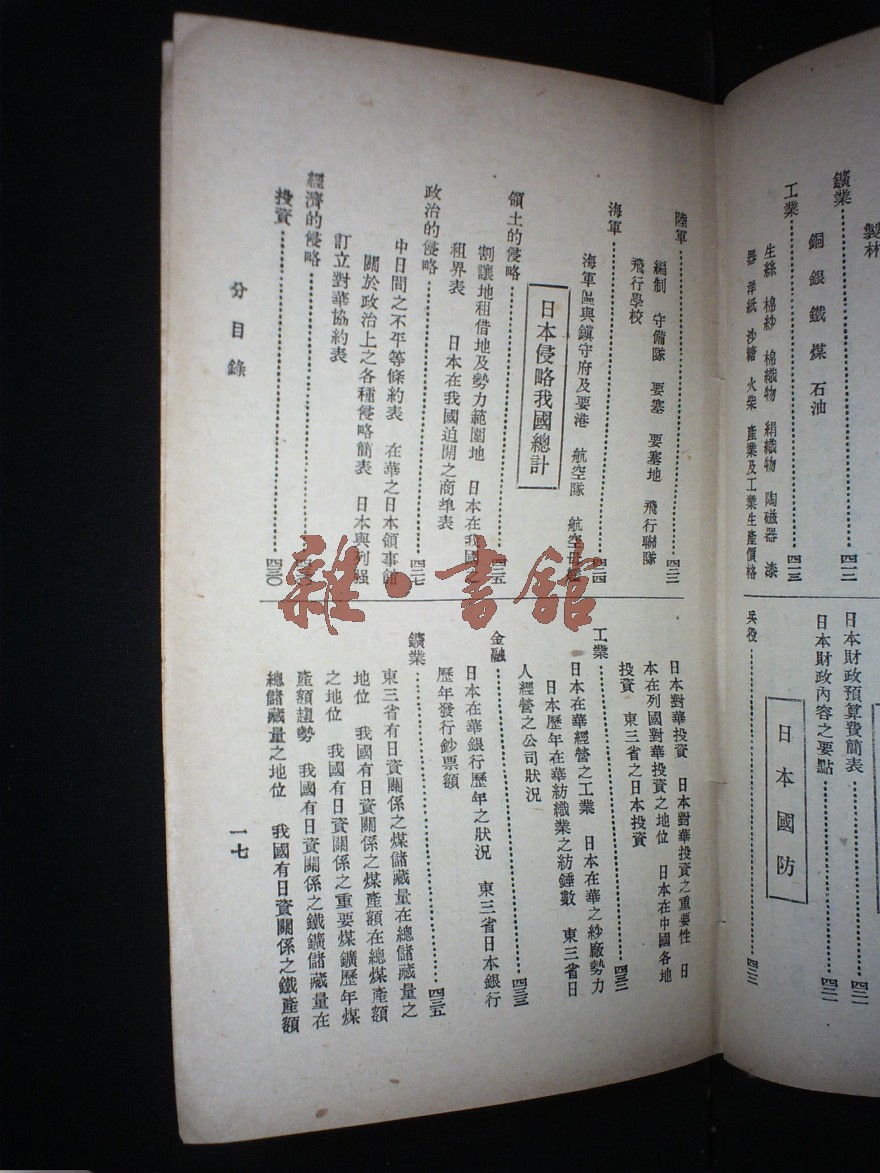 製材
鑛業………四一一
銅 銀 鐵 煤 石油
工業………四一二
生絲 棉紗 棉織物 絹織物 陶磁器 漆
器 洋紙 沙糖 火柴 產業及工業生產價格
日本財政預算費簡表………四二一
日本財政內容之要點………四二一
日本國防
兵役………四二二
陸軍………四二三
編制 守備隊 要塞 要塞地 飛行聯隊
飛行學校
海軍………四二四
海軍區與鎭守府及要港 航空隊 航空母艦
日本侵略我國總計
領土的侵略………四二五
割讓地租借地及勢力範圍地 日本在我國之
租界表 日本在我國迫開之商埠表
政治的侵略………四二七
中日間之不平等條約表 在華之日本領事館
關於政治上之各種侵略簡表 日本與列强
訂立對華協約表
經濟的侵略………四三〇
投資………四三〇
日本對華投資 日本對華投資之重要性 日
本在列國對華投資之地位 日本在中國各地
投資 東三省之日本投資
工業………四三二
日本在華經營之工業 日本在華之紗廠勢力
日本歷年在華紡織業之紡錘數 東三省日
人經營之公司狀況
金融………四三三
日本在華銀行歷年之狀況 東三省日本銀行
歷年發行鈔票額
鑛業………四三五
東三省有日資關係之煤儲藏量在總儲藏量之
地位 我國有日資關係之煤產額在總煤產額
之地位 我國有日資關係之重要煤鑛歷年煤
產額趨勢 我國有日資關係之鐵鑛儲藏量在
總儲藏量之地位 我國有日資關係之鐵產額
分目錄
一七
雜·書館